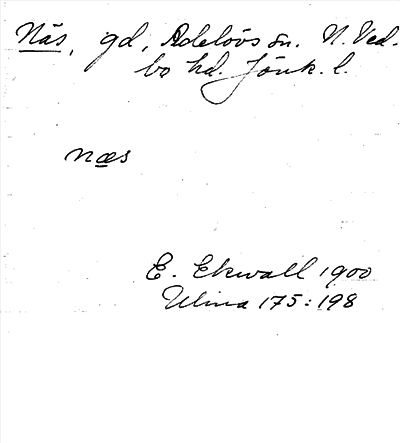 Näs, gd, Adelövs sn. N. Ved.
bo hd. Jönk. l.
næs
E. Ekwall 1900
Ulma 175:198